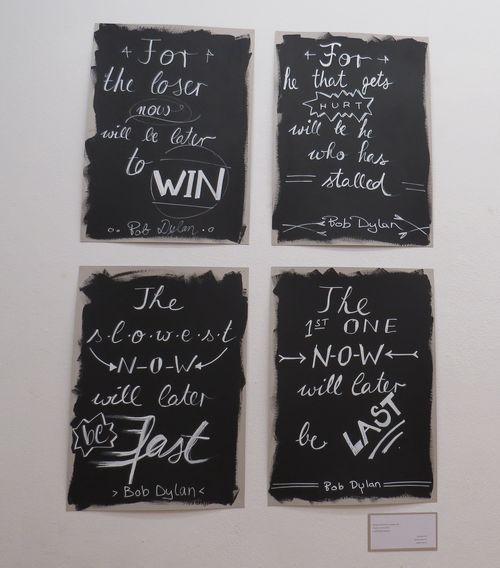 For
the loser
now
will be later
to
WIN
Bob Dylan
For
he that gets
HURT
will be he
who has
stalled
Bob Dylan
The
s.l.o.w.e.s.t
N-O-W
will later
be fast
> Bob Dylan <
The
1ST ONE
N-O-W
will later
be LAST
Bob Dylan